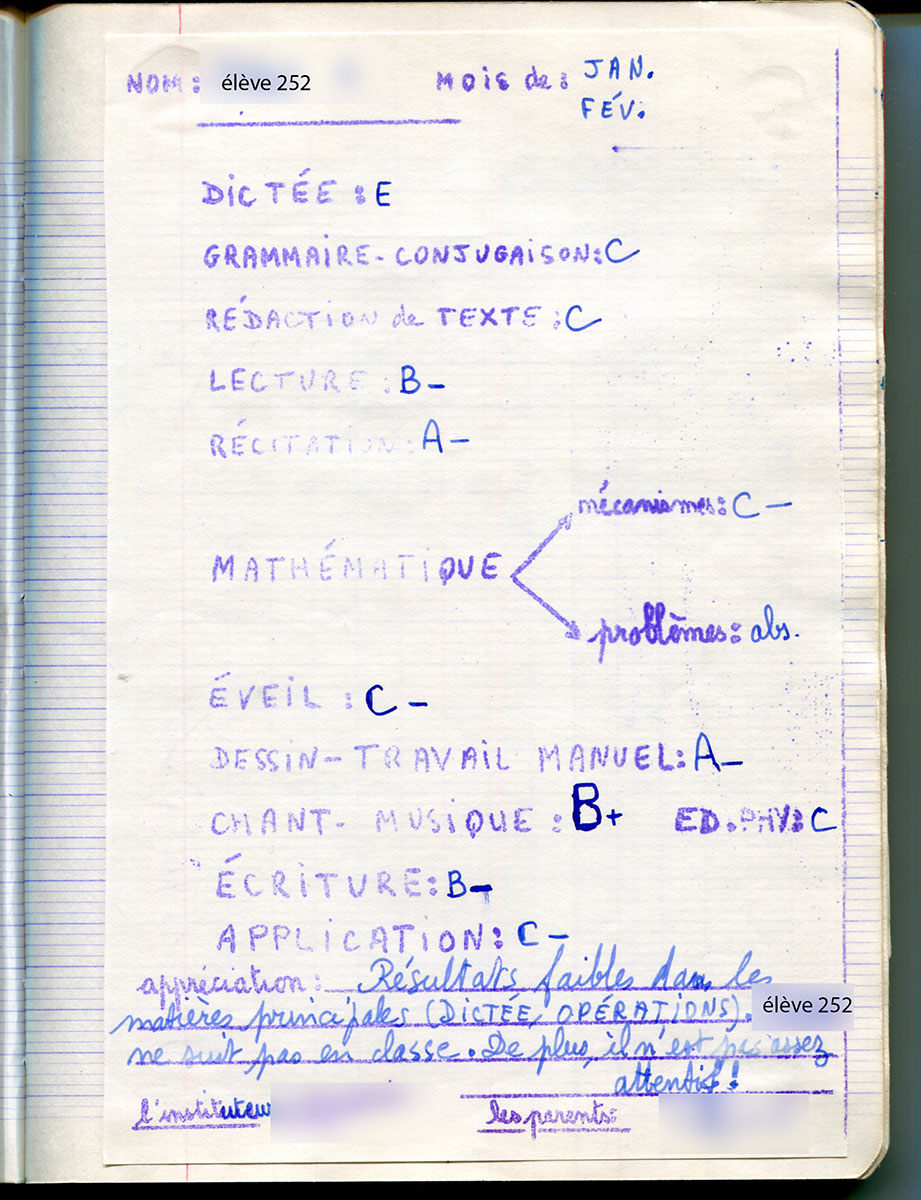 NOM: élève 252 MOIS de: JAN.
FÉV.
DICTÉE : E
GRAMMAIRE-CONJUGAISON: C
RÉDACTION de TEXTE : C
LECTURE : B-
RÉCITATION : A-
mécanismes: C-
MATHÉMATIQUE
problèmes: abs.
ÉVEIL : C-
DESSIN-TRAVAIL MANUEL: A-
CHANT- MUSIQUE : B+ ED.PHY: C
ÉCRITURE: B-
APPLICATION: C-
appréciation: Résultats faibles dans les
matières principales (DICTÉE, OPÉRATIONS). élève 252
ne suit pas en classe. De plus, il n'est pas assez
attentif !
l'instituteur les parents: